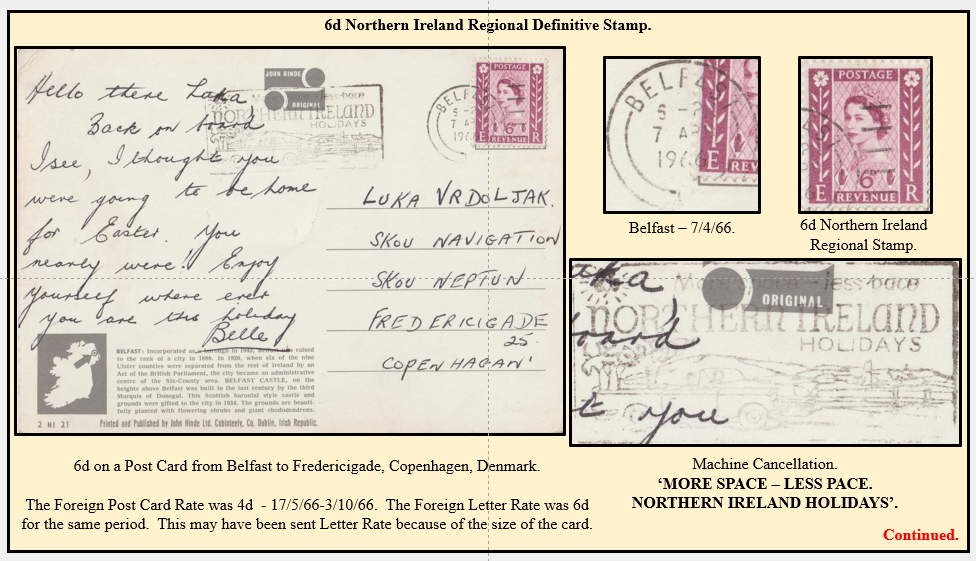 6d Northern Ireland Regional Definitive Stamp.
Hello there Luka
Back on board
I see, I thought you
were going to be home
for Easter. You
nearly were! Enjoy
yourself where ever
you are this holiday
Belle
JOHN HINDE
ORIGINAL
More space - less pace
NORTHERN IRELAND
HOLIDAYS
BELFAST
5 -
7 AP
1966
POSTAGE
6D
E R
REVENUE
LUKA VRDOLJAK.
SKOU NAVIGATION
SKOU NEPTUN
FREDERICIGADE
25.
COPENHAGAN'
BELFAST: Incorporated as a borough in 1842, Belfast was raised
to the rank of a city in 1888. In 1920, when six of the nine
Ulster counties were separated from the rest of Ireland by an
Act of the British Parliament, the city became an administrative
centre of the Six-County area. BELFAST CASTLE, on the
heights above Belfast was built in the last century by the third
Marquis of Donegal. This Scottish baronial style castle and
grounds were gifted to the city in 1934. The grounds are beauti-
fully planted with flowering shrubs and giant rhododendrons.
2 NI 21
Printed and Published by John Hinde Ltd. Cabinteely, Co. Dublin, Irish Republic.
BELFAST
5 -
7 AP
1966
E
REV
Belfast – 7/4/66.
POSTAGE
6D
E R
REVENUE
6d Northern Ireland
Regional Stamp.
uka
More space - less pace
ORIGINAL
NORTHERN IRELAND
HOLIDAYS
oard
t you
Machine Cancellation.
‘MORE SPACE – LESS PACE.
NORTHERN IRELAND HOLIDAYS’.
6d on a Post Card from Belfast to Fredericigade, Copenhagen, Denmark.
The Foreign Post Card Rate was 4d - 17/5/66-3/10/66. The Foreign Letter Rate was 6d
for the same period. This may have been sent Letter Rate because of the size of the card.
Continued.